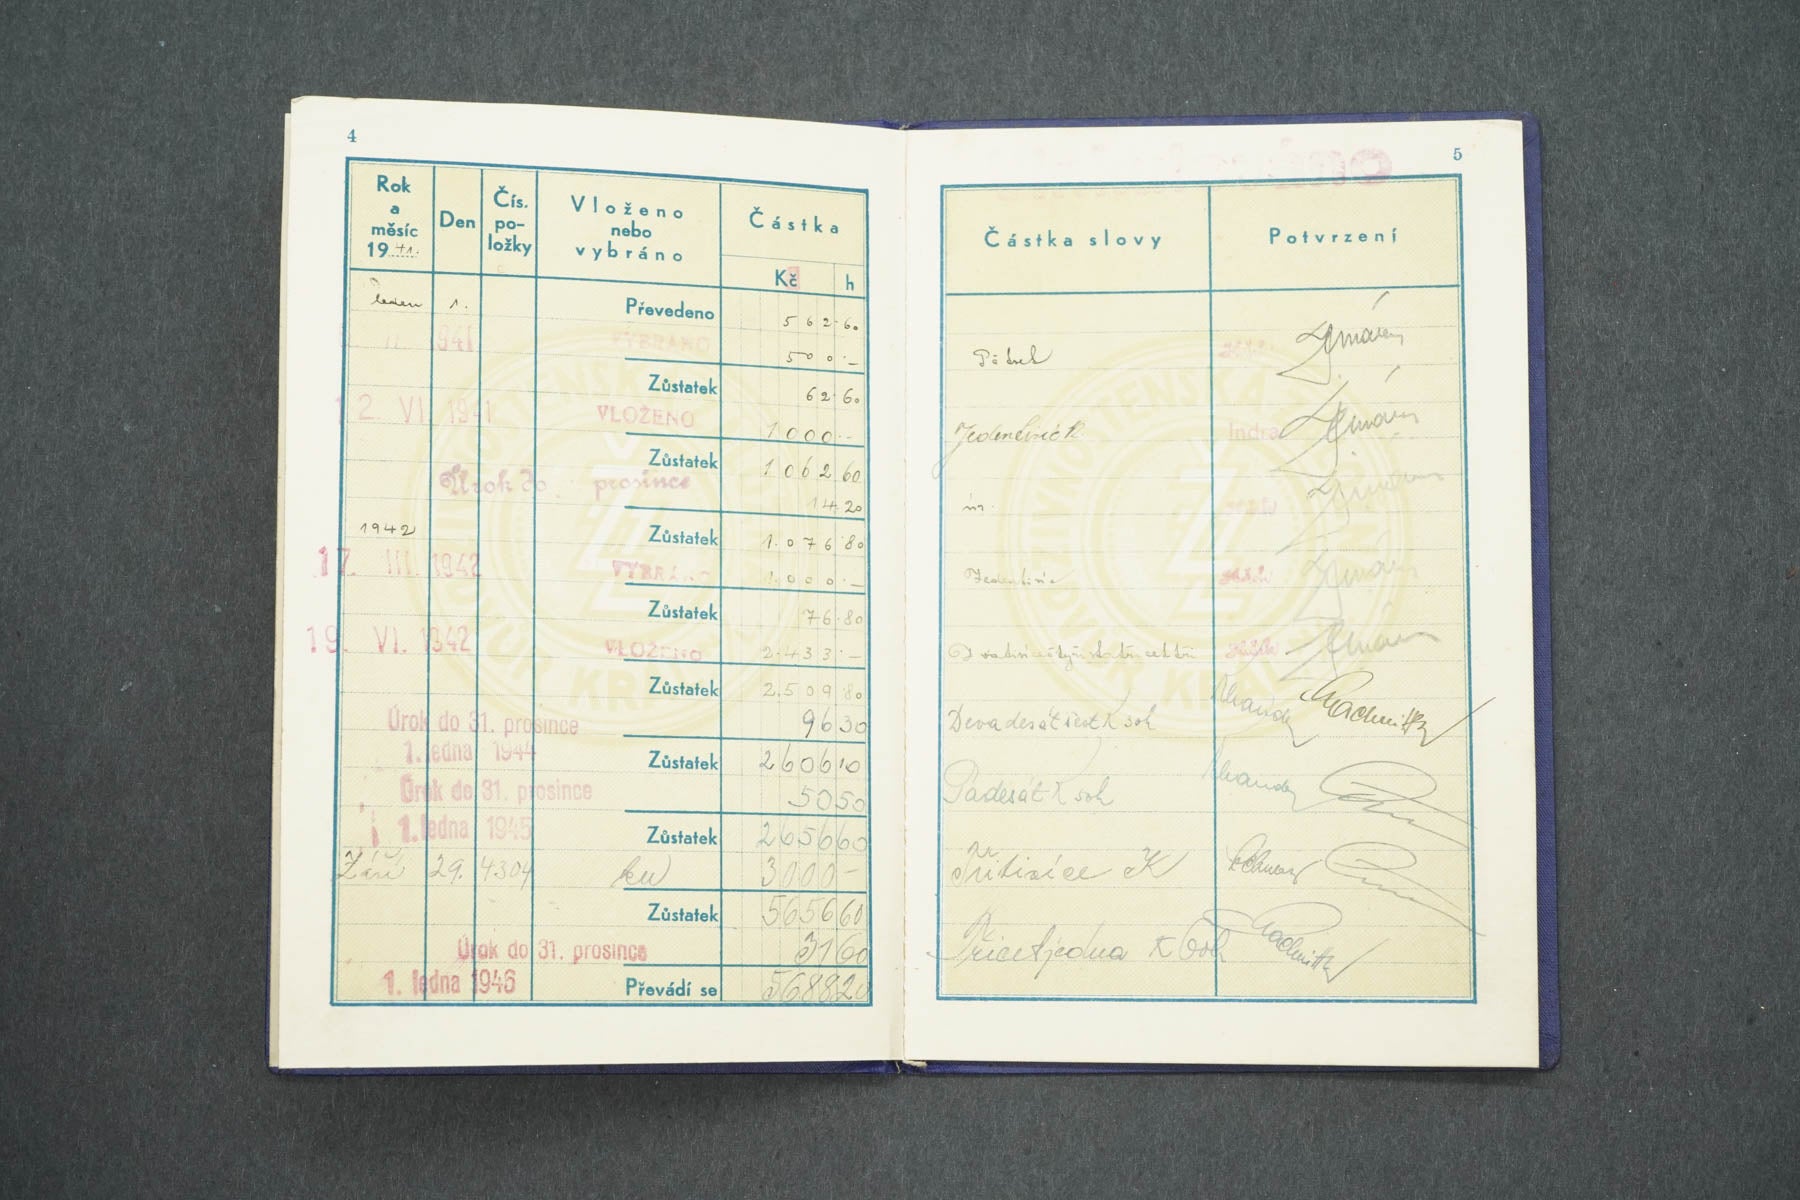 4
Rok a měsíc 19 41.
Den
Čís. po- ložky
Vloženo nebo vybráno
Částka
Kč h
leden 1. Převedeno 562.60
1941 VYBRÁNO 500.—
Zůstatek 62.60
12. VI. 1941 VLOŽENO 1000.—
Zůstatek 1062.60
Úrok do prosince 14.20
1942 Zůstatek 1.076.80
17. III. 1942 VYBRÁNO 1.000.—
Zůstatek 76.80
19. VI. 1942 VLOŽENO 2.433.—
Zůstatek 2.509.80
Úrok do 31. prosince 96 30
1. ledna 1944 Zůstatek 2606 10
Úrok do 31. prosince 50 50
1. ledna 1945 Zůstatek 2656 60
Září 29. 4304 3000 —
Zůstatek 5656 60
Úrok do 31. prosince 31 60
1. ledna 1946 Převádí se 5688 20
5
Částka slovy
Potvrzení
Pětset
Jedentisíc K. Indra
úr.
Jedentisíc
Dvatisícečtyřistatřicettři
Devadesátšest K 30h
Padesát K 50h
Třitisíce K
Třicetjedna K 60h
ŽIVNOSTENSKÁ
DVŮR KRÁL
ŽIVNOSTENSKÁ
DVŮR KRÁL